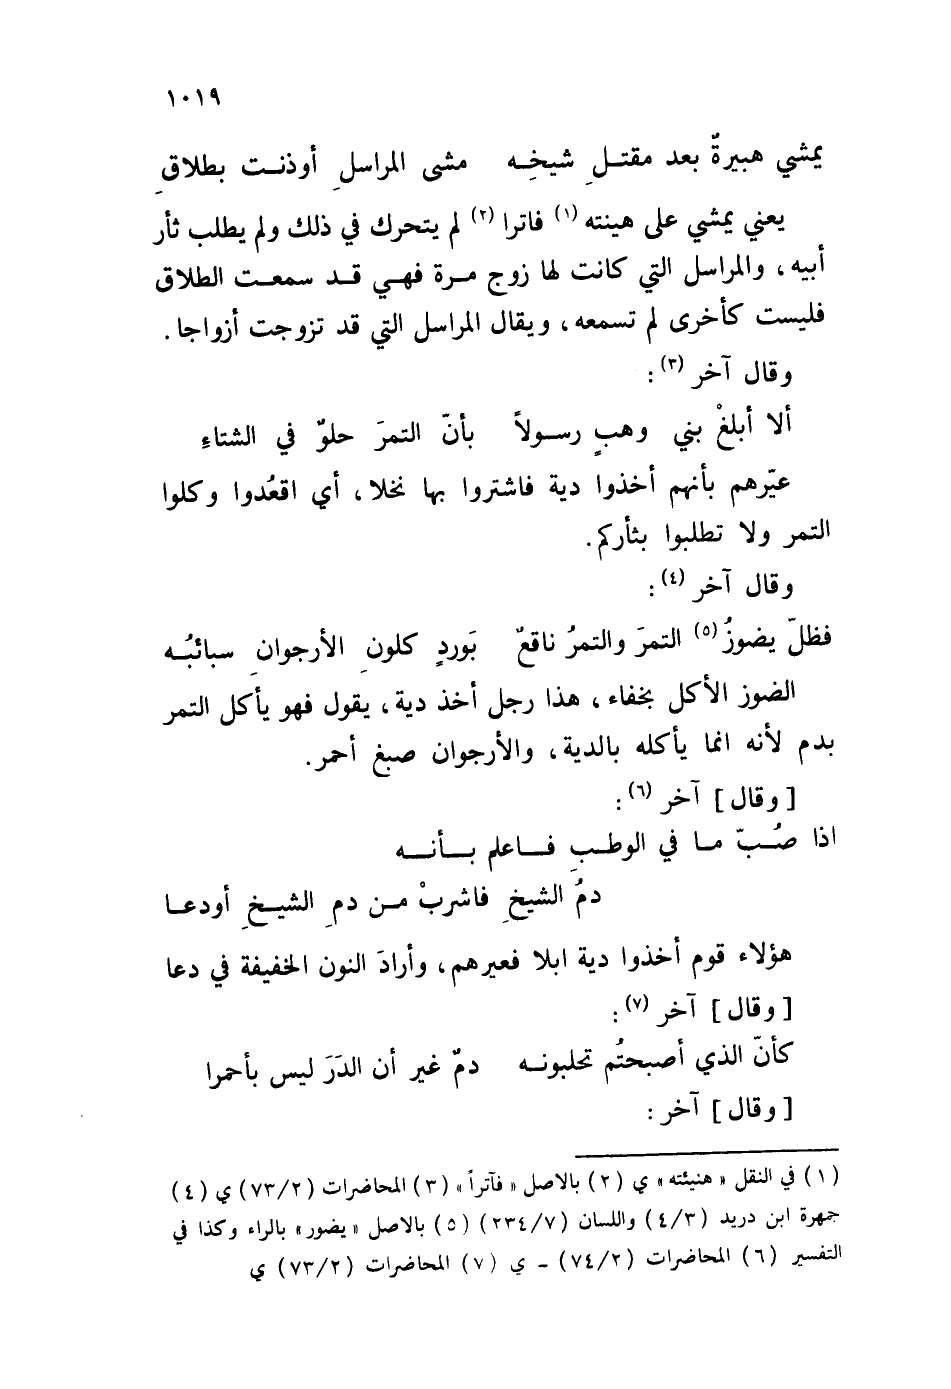 ١٠١٩
يمشي هبيرةٌ بعد مقتلِ شيخِه مشى المراسلِ أوذنت بطلاقِ
يعني يمشي على هينته (١) فاترا (٢) لم يتحرك في ذلك ولم يطلب ثأر
أبيه، والمراسل التي كانت لها زوج مرة فهي قد سمعت الطلاق
فليست كأخرى لم تسمعه، ويقال المراسل التي قد تزوجت أزواجا.
وقال آخر (٣) :
ألا أبلغْ بني وهبٍ رسولاً بأنّ التمرَ حلوٌ في الشتاءِ
عيّرهم بأنهم أخذوا دية فاشتروا بها نخلا، أي اقعُدوا وكلوا
التمر ولا تطلبوا بثأركم.
وقال آخر (٤) :
فظلّ يضوزُ (٥) التمرَ والتمرُ ناقعٌ بَوردٍ كلونِ الأرجوانِ سبائبُه
الضوز الأكل بخفاء، هذا رجل أخذ دية، يقول فهو يأكل التمر
بدم لأنه انما يأكله بالدية، والأرجوان صبغ أحمر.
[وقال] آخر (٦) :
اذا صُبّ ما في الوطبِ فاعلم بأنه
دمُ الشيخِ فاشربْ من دمِ الشيخِ أودعا
هؤلاء قوم أخذوا دية ابلا فعيرهم، وأرادَ النون الخفيفة في دعا
[وقال] آخر (٧) :
كأنّ الذي أصبحتُم تحلبونه دمٌ غير أن الدَرَ ليس بأحمرا
[وقال] آخر :
(١) في النقل «هنيئته» ي (٢) بالاصل «فآتراً» (٣) المحاضرات (٧٣/٢) ي (٤)
جمهرة ابن دريد (٤/٣) واللسان (٢٣٤/٧) (٥) بالاصل «يضور» بالراء وكذا في
التفسير (٦) المحاضرات (٧٤/٢) - ي (٧) المحاضرات (٧٣/٢) ي